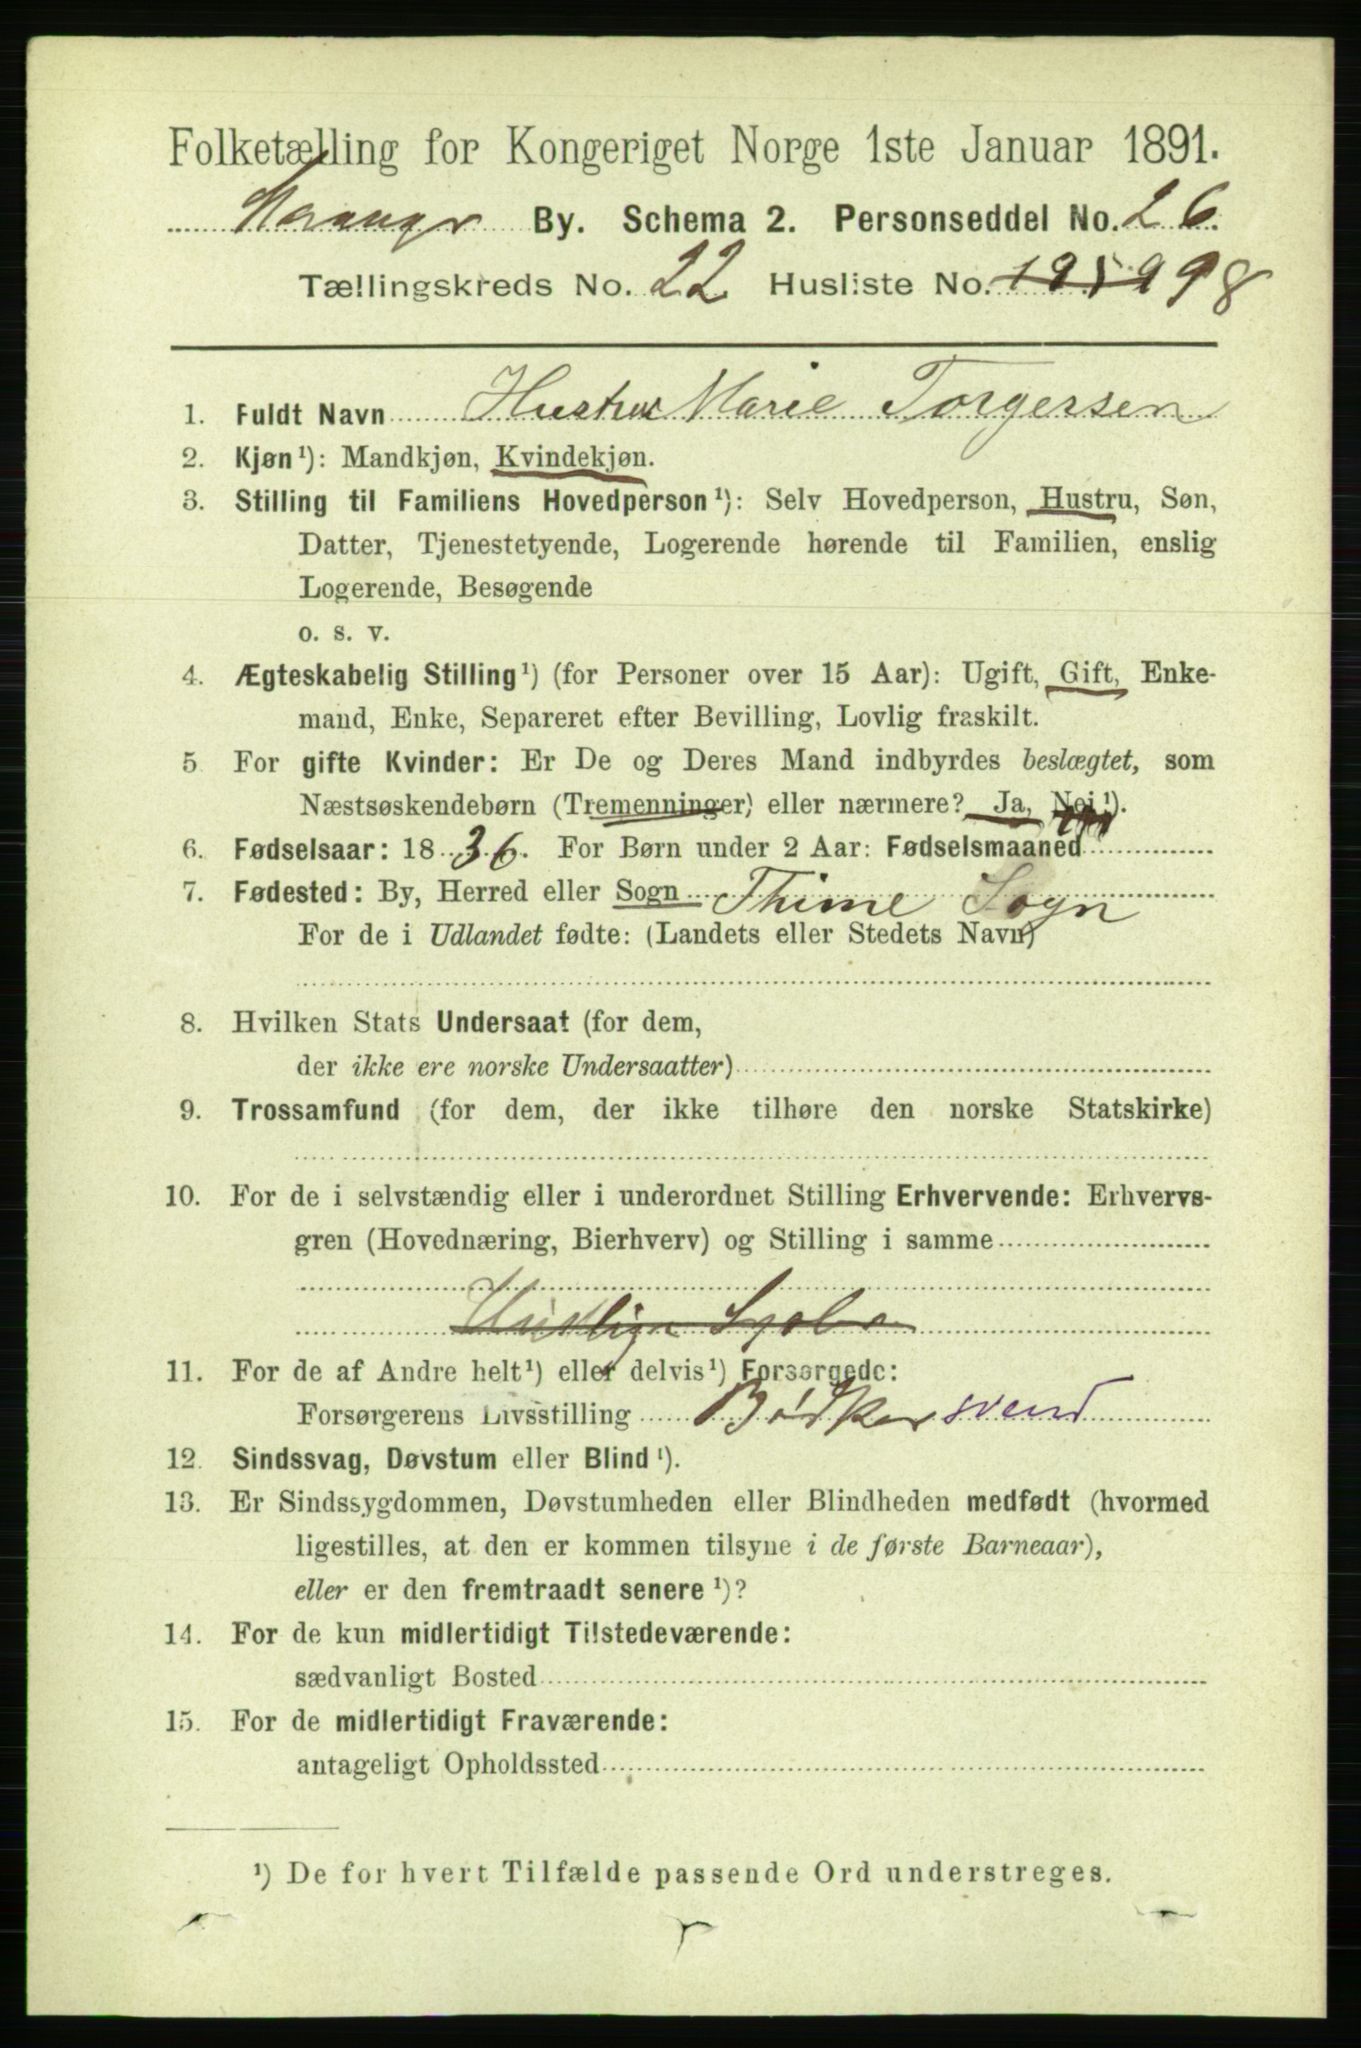 Folketælling for Kongeriget Norge 1ste Januar 1891.
By. Schema 2. Personseddel No. 26.
Tællingskreds No. 22 Husliste No. 98
1. Fuldt Navn Hustru Marie Torgersen
2. Kjøn¹): Mandkjøn, Kvindekjøn.
3. Stilling til Familiens Hovedperson¹): Selv Hovedperson, Hustru, Søn,
Datter, Tjenestetyende, Logerende hørende til Familien, enslig
Logerende, Besøgende
o. s. v.
4. Ægteskabelig Stilling¹) (for Personer over 15 Aar): Ugift, Gift, Enke-
mand, Enke, Separeret efter Bevilling, Lovlig fraskilt.
5 For gifte Kvinder: Er De og Deres Mand indbyrdes beslægtet, som
Næstsøskendebørn (Tremenninger) eller nærmere? Ja, Nei¹).
6. Fødselsaar: 1836. For Børn under 2 Aar: Fødselsmaaned
7. Fødested: By, Herred eller Sogn Thime Sogn
For de i Udlandet fødte: (Landets eller Stedets Navn)
8. Hvilken Stats Undersaat (for dem,
der ikke ere norske Undersaatter)
9. Trossamfund (for dem, der ikke tilhøre den norske Statskirke)
10. For de i selvstændig eller i underordnet Stilling Erhvervende: Erhvervs-
gren (Hovednæring, Bierhverv) og Stilling i samme
11. For de af Andre helt¹) eller delvis¹) Forsørgede:
Forsørgerens Livsstilling Bødkersvend
12. Sindssvag, Døvstum eller Blind¹).
13. Er Sindssygdommen, Døvstumheden eller Blindheden medfødt (hvormed
ligestilles, at den er kommen tilsyne i de første Barneaar),
eller er den fremtraadt senere¹)?
14. For de kun midlertidigt Tilstedeværende:
sædvanligt Bosted
15. For de midlertidigt Fraværende:
antageligt Opholdssted
¹) De for hvert Tilfælde passende Ord understreges.